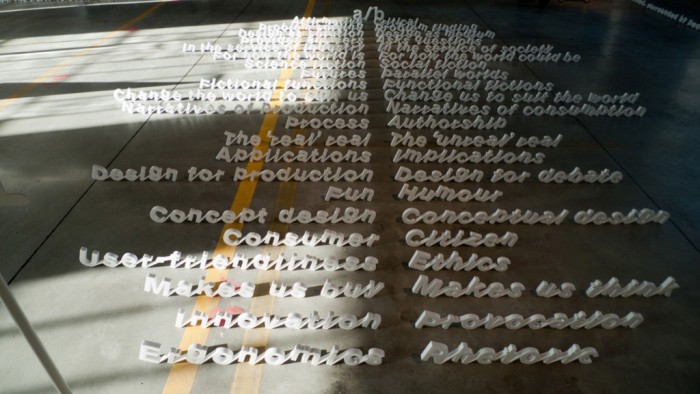 a/b
In the service of industry In the service of society
For how the world is For how the world could be
Science fiction Social fiction
Futures Parallel worlds
Fictional functions Functional fictions
Change the world to suit us Change us to suit the world
Narratives of production Narratives of consumption
Process Authorship
The "real" real The "unreal" real
Applications Implications
Design for production Design for debate
Fun Humour
Concept design Conceptual design
Consumer Citizen
User-friendliness Ethics
Makes us buy Makes us think
Innovation Provocation
Ergonomics Rhetoric